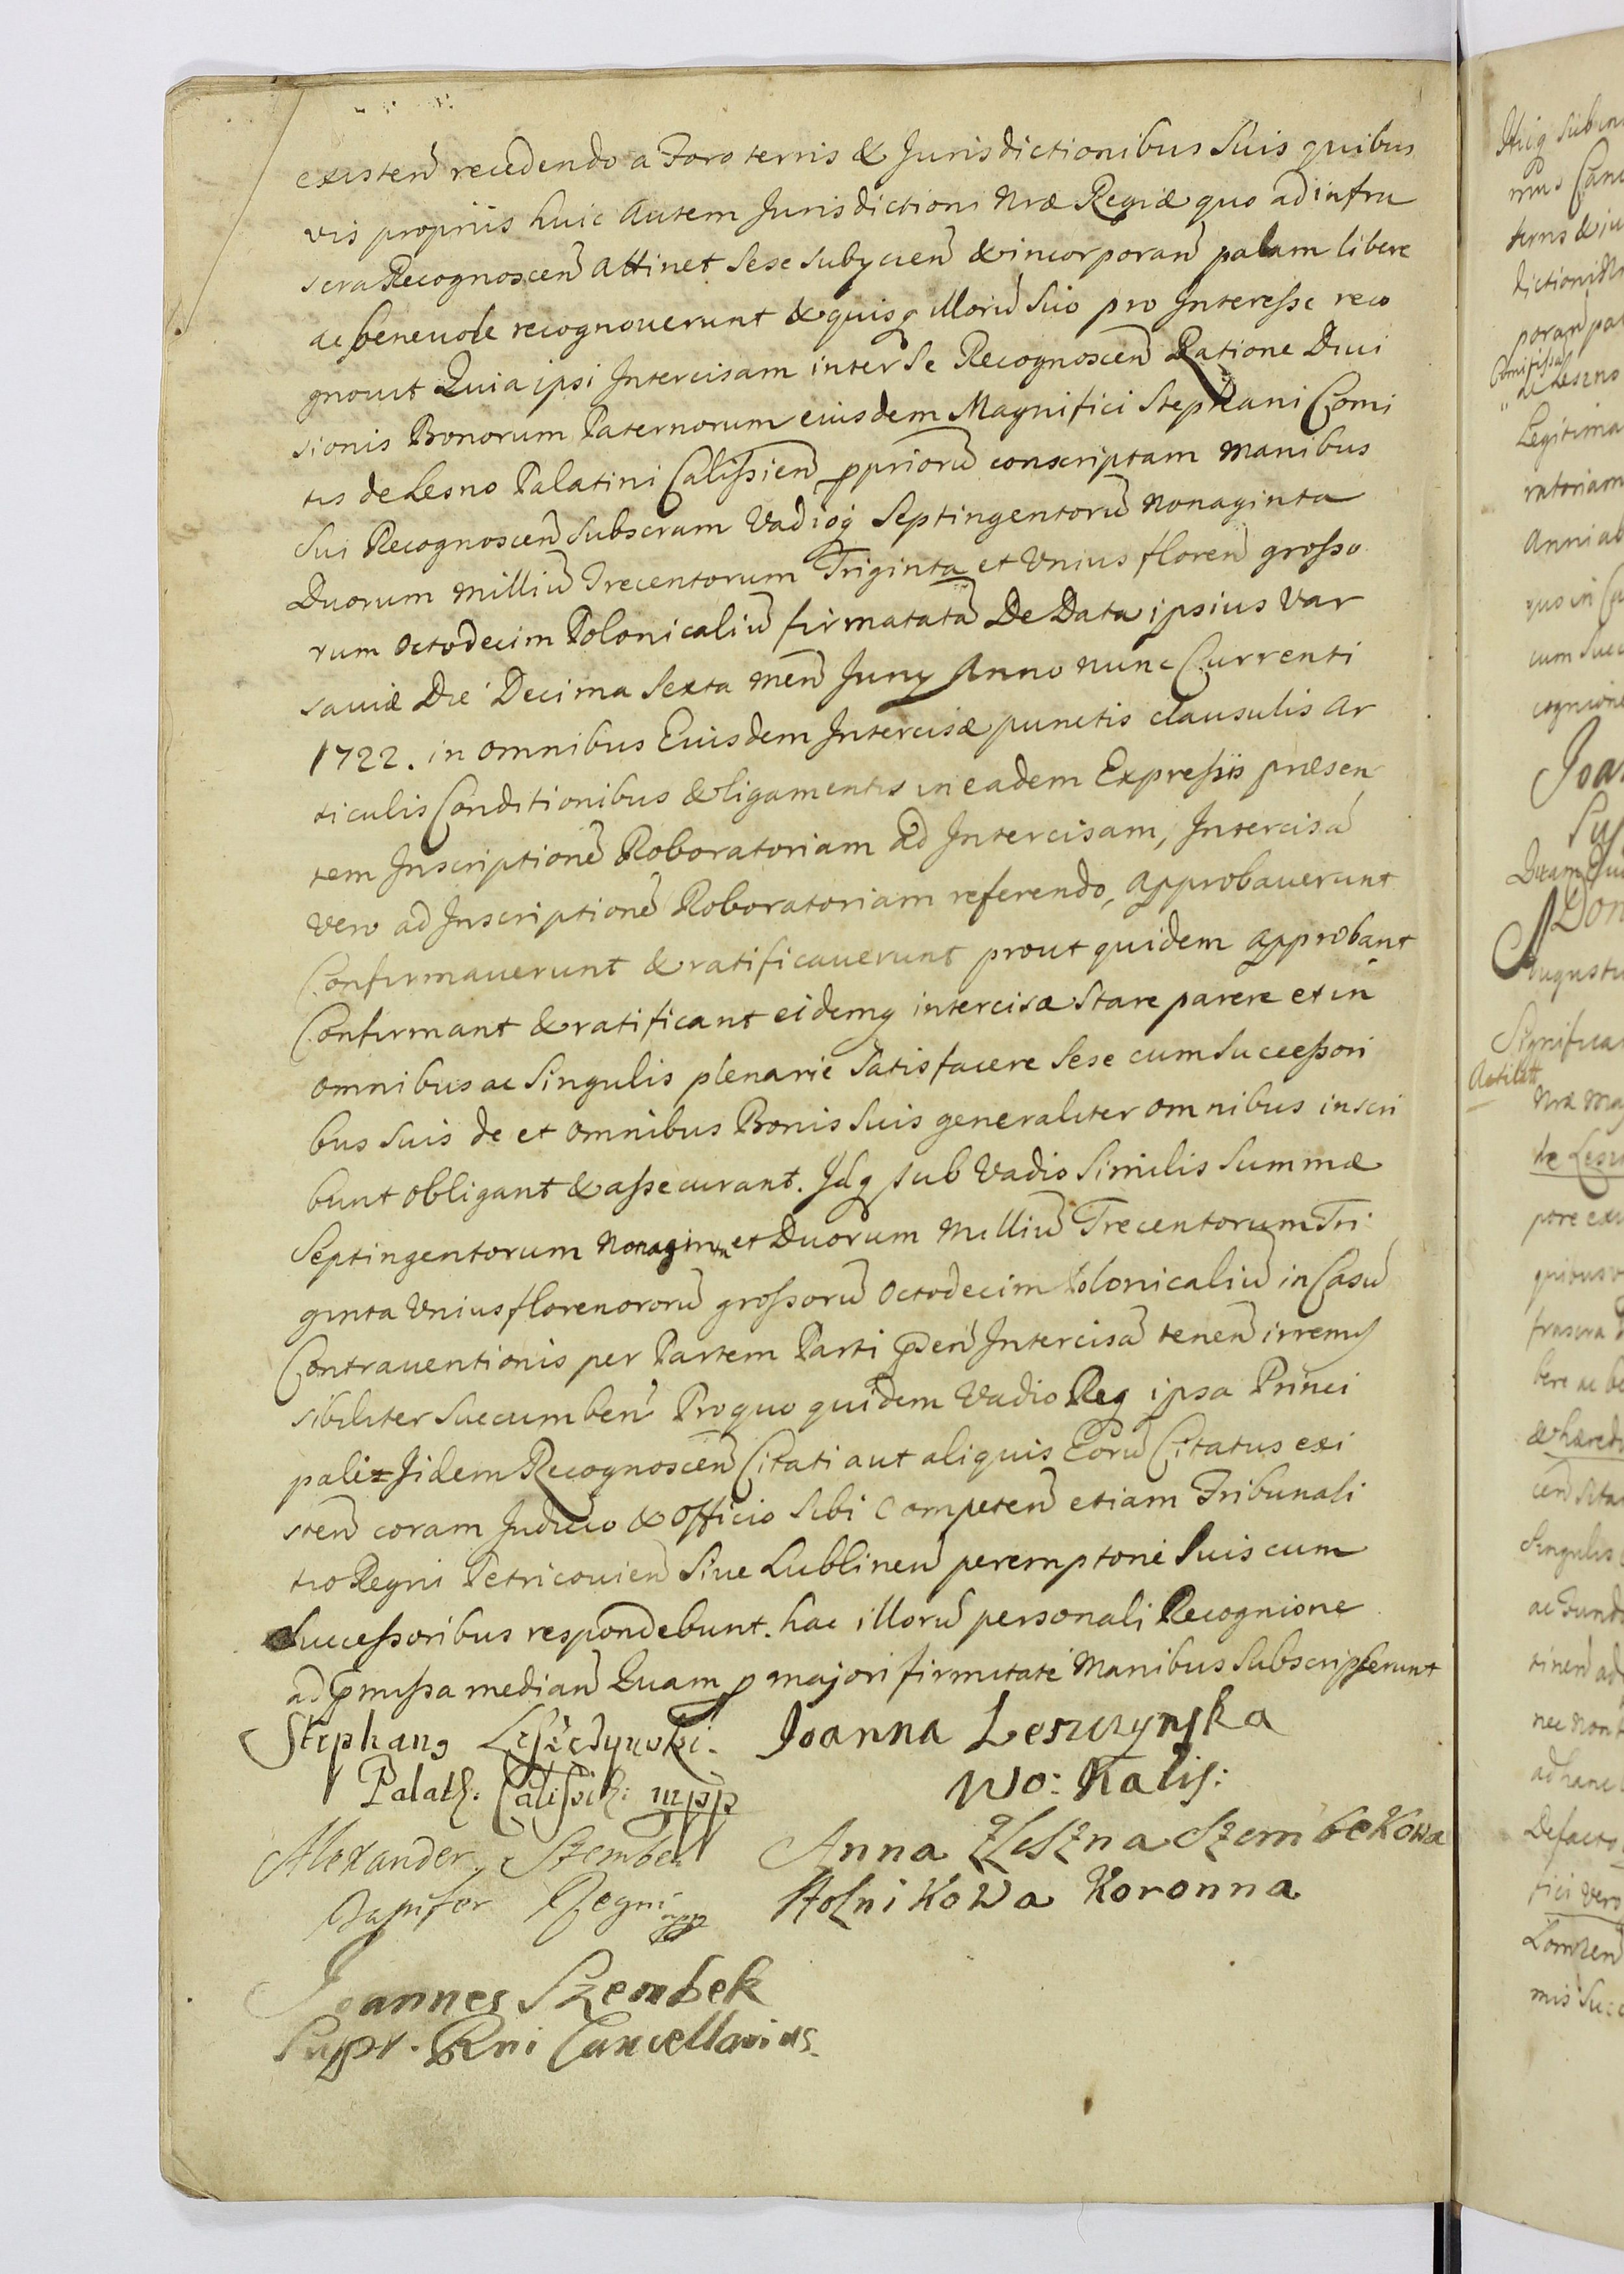 existen̄ recedendo a Foro terris & Jurisdictionibus Suis quibus
vis propriis huic autem Jurisdictioni Nræ Regiæ quo ad infra
scra Recognoscen̄ attinet Sese Subycien̄ & incorporan̄ palam libere
ac benevole recognoverunt & quisq illorū Suo pro Interesse reco
gnovit Quia ipsi Intercisam inter Se Recognoscen̄ Ratione Divi
sionis Bonorum Paternorum eiusdem Magnifici Stephani Comi
tis de Lesno Palatini Calissien̄ ppriorū conscriptam manibus
Sui Recognoscen̄ Subscram Vadioq Septingentorū Nonaginta
Duorum milliū Trecentorum Triginta et Vnius floren̄ grosso
rum Octodecim Polonicaliū firmatatā De Data ipsius Var
saviæ Die Decima Sexta men̄ Juny Anno nunc Currenti
1722. in omnibus Eiusdem Intercisæ punctis clausulis Ar
ticulis Conditionibus & ligamentis in eadem Expressis præsen
tem Inscriptionē Roboratoriam ad Intercisam, Intercisā
vero ad Inscriptionē Roboratoriam referendo, approbaverunt
Confirmaverunt & ratificaverunt prout quidem approbant
Confirmant & ratificant eidemq intercisæ Stare parere et in
omnibus ac Singulis plenarie Satisfacere Sese cum Successori
bus Suis de et omnibus Bonis Suis generaliter omnibus inscri
bunt obligant & assecurant. Idq sub Vadio Similis Summæ
Septingentorum Nonaginta et Duorum Milliū Trecentorum Tri
ginta Vnius florenororū grossorū Octodecim Polonicaliū in Casū
Contraventionis per Partem Parti p̄sen̄ Intercisā tenen̄ irremis
sibiliter Succumben̄ Pro quo quidem Vadio Req ipsa Princi
pali Iidem Recognoscen̄ Citati aut aliquis Eorū Citatus exi
sten̄ coram Judicio & Officio Sibi Competen̄ etiam Tribunali
tio Regni Petricovien̄ Sive Lublinen̄ peremptorie Suis cum
Successoribus respondebunt. hac illorū personali Recognione
ad p̄missa median̄ Quam p majori firmitate Manibus Subscripserunt
Stephang Leszczynski. Joanna Leszczynska
Palat: Calissie: mpp Wo: Kalis:
Alexander Szembek Anna z Leszna Szembekowa
Dapifer Regni mpp Stolnikowa Koronna
Joannes Szembek
Supr. Rni Cancellarius